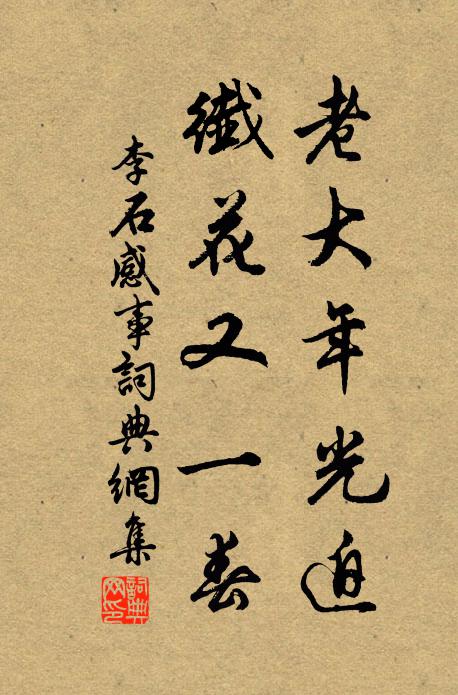 老大年光迫
纖花又一春
李石感事詞典網集
詞典網印